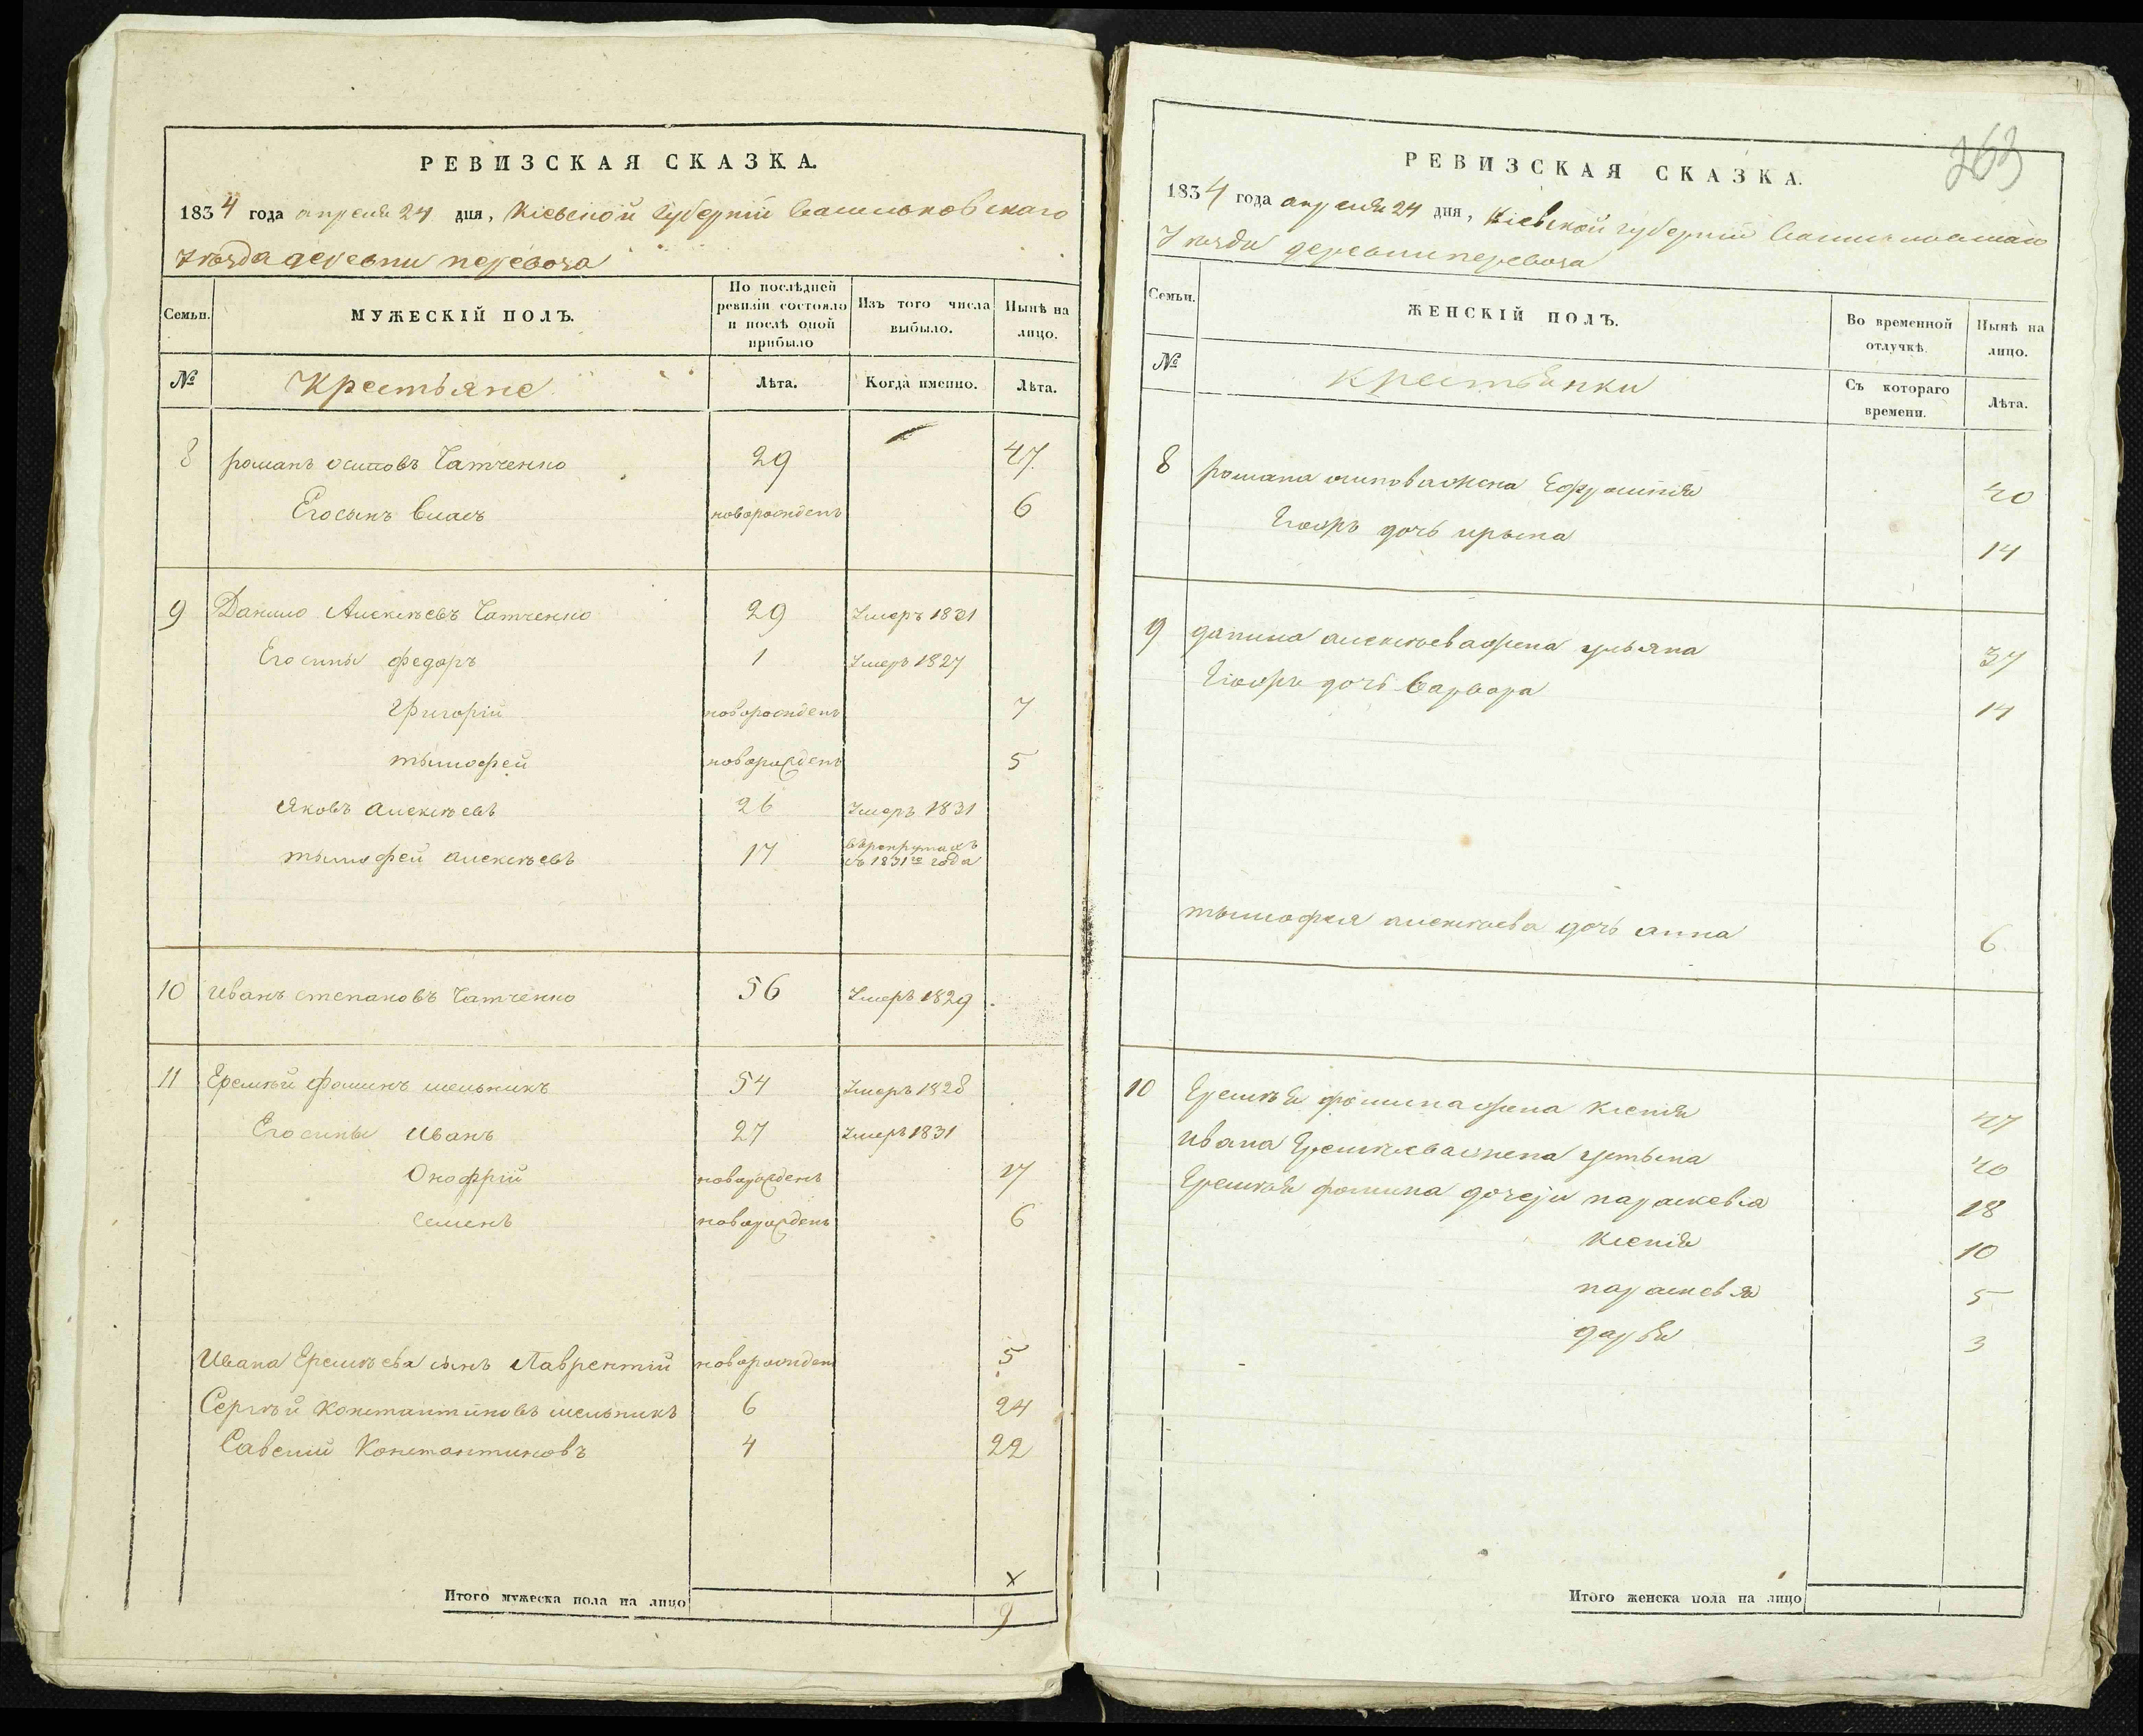 РЕВИЗСКАЯ СКАЗКА.
1834 года апреля 24 дня, Кіевской Губерніи Васильковскаго
Уѣзда деревни перевоза
Семьи.
МУЖЕСКІЙ ПОЛЪ.
По послѣдней ревизіи состояло и послѣ оной прибыло
Изъ того числа выбыло.
Нынѣ на лицо.
№ Крестьяне Лѣта. Когда именно. Лѣта.
8 романъ осиповъ 29 47
Его сынъ власъ новорожденъ 6
9 Данило Алексѣевъ 29 Умеръ 1831
Его сины федоръ 1 Умеръ 1827
Григорій новорожденъ 7
тымофей новорожденъ 5
Яковъ алексѣевъ 26 Умеръ 1831
тымофей алексѣевъ 17 въ рекрутахъ
съ 1831го года
10 Иванъ степановъ 56 Умеръ 1829
11 Еремѣй фоминъ мельникъ 54 Умеръ 1828
Его сины Иванъ 27 Умеръ 1831
Онофрій новорожденъ 17
семенъ новорожденъ 6
Ивана Еремѣева сынъ Лаврентій новорожден 5
Сергѣй Константиновъ мельникъ 6 24
Савелій Константиновъ 4 22
х
Итого мужеска пола на лицо 9
263
РЕВИЗСКАЯ СКАЗКА.
1834 года апреля 24 дня, Кіевской губерніи
Уѣзда деревни перевоза
Семьи.
ЖЕНСКІЙ ПОЛЪ.
Во временной отлучкѣ.
Нынѣ на лицо.
№ крестьянки Съ котораго времени. Лѣта.
8 романа осипова жена Ефросинія 40
дочь ирына 14
9 данила алексѣева жена ульяна 37
дочь варвара 14
тымофея алексѣева дочь анна 6
10 Еремѣя фомина жена ксенія 47
ивана Еремѣева жена устына 40
Еремѣя фомина дочери параскевія 18
ксенія 10
параскевія 5
дарья 3
Итого женска пола на лицо